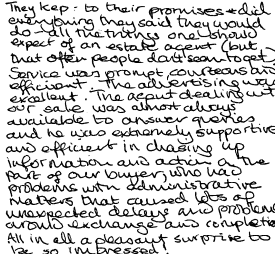 They kept to their promises & did
everything they said they would
do - all the things one should
expect of an estate agent (but
that often people don't seem to get).
Service was prompt, courteous and
efficient. The advertising was
excellent. The agent dealing with
our sale was almost always
available to answer queries
and he was extremely supportive
and efficient in chasing up
information and action on the
part of our buyer, who had
problems with administrative
matters that caused lots of
unexpected delays and problems
around exchange and completion.
All in all a pleasant surprise to
be so impressed!